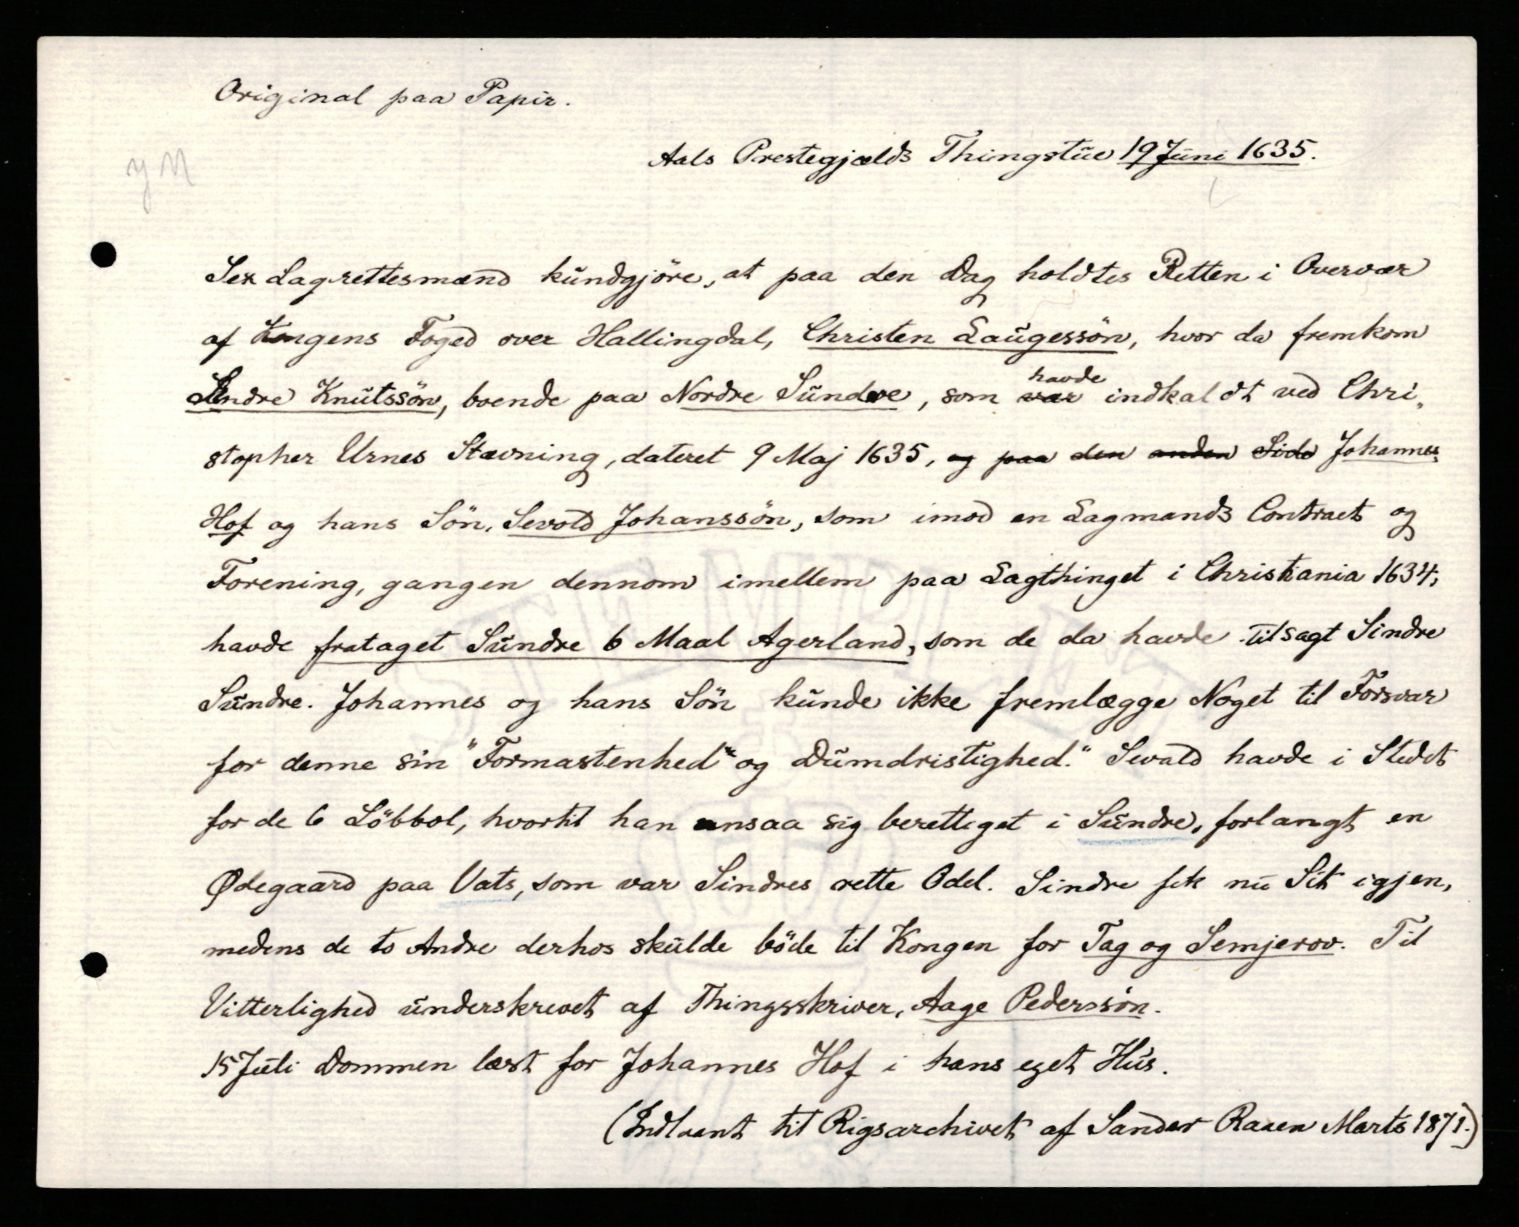 Original paa Papir.
Aals Prestegjælds Thingstue 19 Juni 1635.
Sex Lagrettesmænd kundgjöre, at paa den Dag holdtes Retten i Overvær
af Kongens Foged over Hallingdal, Christen Laugessön, hvor da fremkom
Sindre Knutssön, boende paa Nordre Sundre, som havde indkaldt ved Chri-
stopher Urnes Stævning, dateret 9 Maj 1635, og paa den anden Side Johannes
Hof og hans Sön, Sevold Johanssön, som imod en Lagmands Contract og
Forening, gangen dennom imellem paa Lagthinget i Christiania 1634,
havde frataget Sundre 6 Maal Agerland, som de da havde tilsagt Sindre
Sundre. Johannes og hans Sön kunde ikke fremlægge Noget til Forsvar
for denne sin "Formastenhed" og Dumdristighed." Sevald havde i Stedet
for de 6 Löbbol, hvortil han ansaa sig berettiget i Sundre, forlangt en
Ødegaard paa Vats, som var Sindres rette Odel. Sindre fik nu Sit igjen,
medens de to Andre derhos skulde böde til Kongen for Tag og Semjerov. Til
Vitterlighed underskrevet af Thingsskriver, Aage Pederssön.
15 Juli Dommen læst for Johannes Hof i hans eget Hus.
(Indlaant til Rigsarchivet af Sander Raaen Marts 1871.)